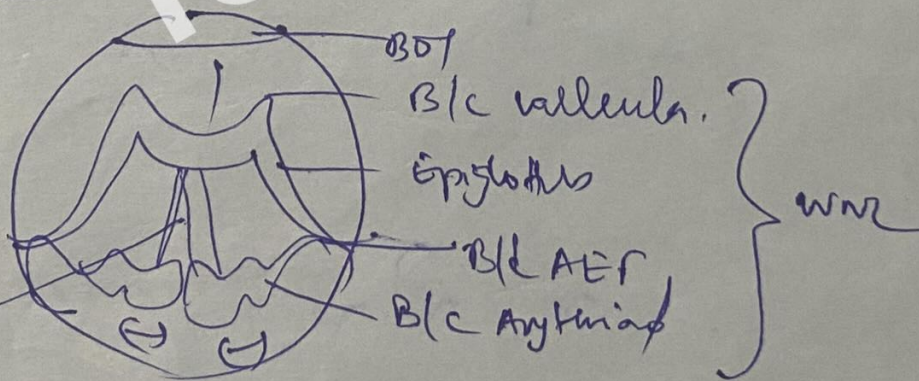 BOT
B/L vallecula.
Epiglottis
B/L AEF
B/L Arytenoid
WNL